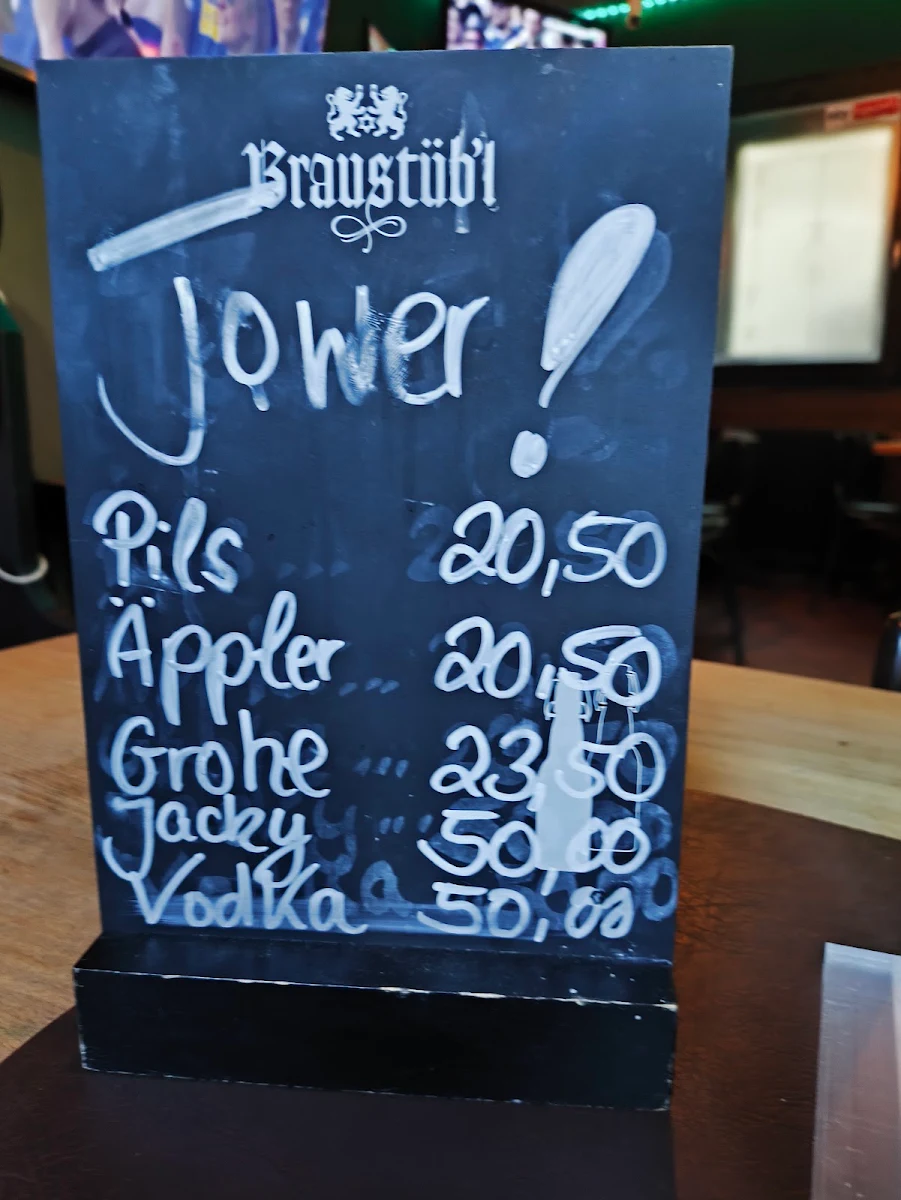 Braustüb'l
Tower!
Pils 20,50
Äppler ... 20,50
Grohe ... 23,50
Jacky ... 50,00
Vodka 50,00